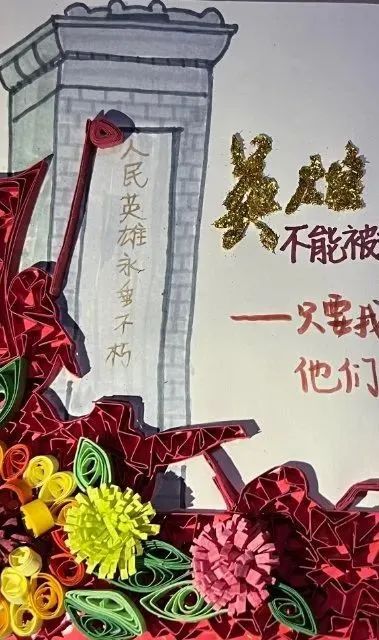 人民英雄永垂不朽
英雄
不能被
——只要我
他们